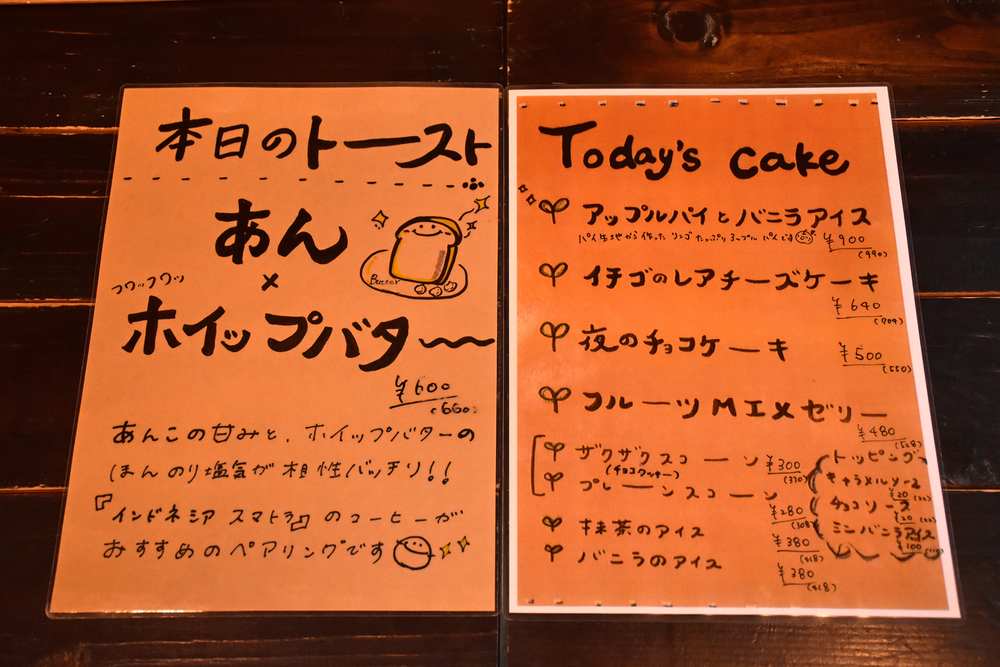 本日のトースト
あん
×
フワッフワッ
ホイップバター
Butter
¥600
(660)
あんこの甘みと、ホイップバターの
ほんのり塩気が相性バッチリ!!
『インドネシア スマトラ』のコーヒーが
おすすめのペアリングです
Today's cake
アップルパイとバニラアイス
パイ生地から作った リンゴ たっぷり アップル パイです
¥900
(990)
イチゴのレアチーズケーキ
¥640
(704)
夜のチョコケーキ
¥500
(550)
フルーツMIXゼリー
¥480
(528)
ザクザクスコーン ¥300
(チョコクッキー) (330)
プレーンスコーン
¥280
(308)
抹茶のアイス
¥380
(418)
バニラのアイス
¥380
(418)
トッピング
キャラメルソース
¥20 (22)
チョコソース
¥20 (22)
ミニバニラアイス
¥100 (110)